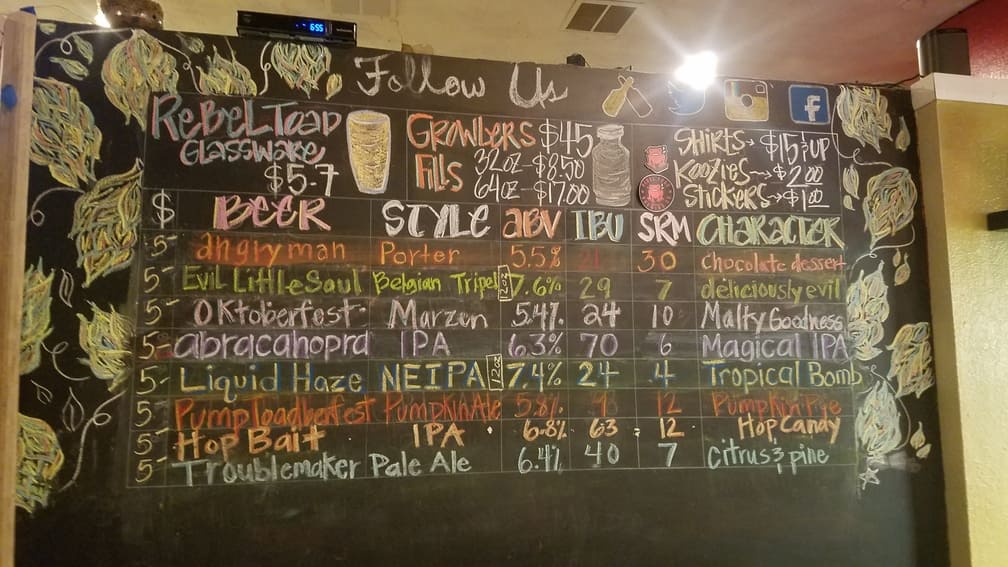 6:55
Follow Us
RebelToad Glassware $5-7
Growlers $45
Fills 32oz - $8.50
64oz - $17.00
Shirts → $15 & up
Koozies → $2.00
Stickers → $1.00
$ BEER STYLE ABV IBU SRM CHARACTER
5- angry man Porter 5.5% 30 chocolate dessert
5- Evil Little Saul Belgian Tripel 12oz 7.6% 29 7 deliciously evil
5- Oktoberfest Marzen 5.4% 24 10 Malty Goodness
5- abracahopra IPA 6.3% 70 6 Magical IPA
5- Liquid Haze NEIPA 12oz 7.4% 24 4 Tropical Bomb
5- PumpToadberfest Pumpkin Ale 5.8% 12 Pumpkin Pye
5- Hop Bait IPA 6.8% 63 12 Hop Candy
5- Troublemaker Pale Ale 6.4% 40 7 citrus & pine